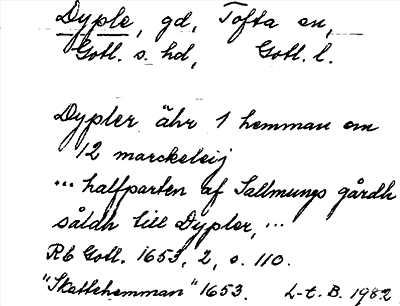 Dyple, gd, Tofta sn,
Gotl. s. hd, Gotl. l.
Dypler ähr 1 hemman om
12 marckeleij
... halfparten af Sallmungs gårdh
såldh till Dypler, ...
Rb Gotl. 1653, 2, s. 110.
"Skattehemman" 1653. L-t. B. 1982